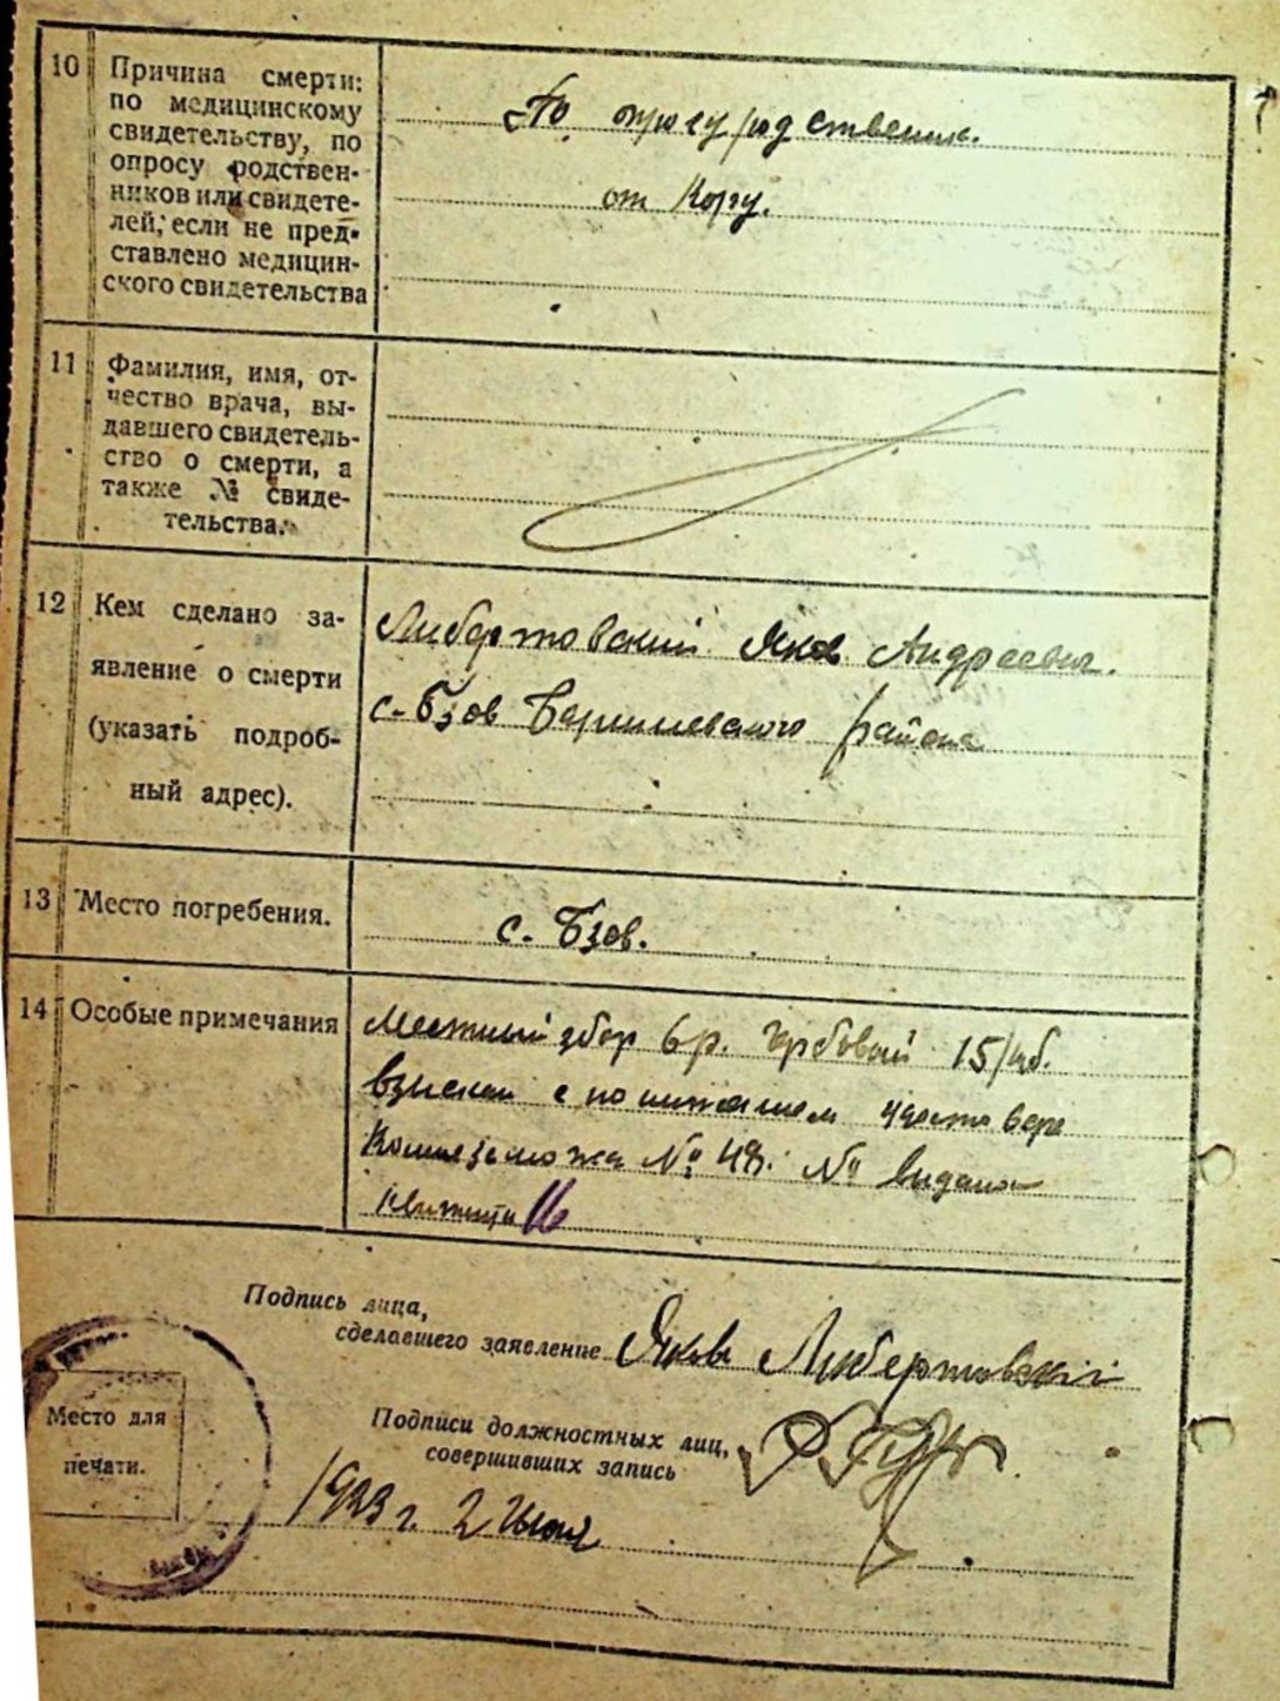 10 Причина смерти:
по медицинскому
свидетельству, по
опросу родствен-
ников или свидете-
лей; если не пред-
ставлено медицин-
ского свидетельства
По опросу родственик.
от Кору.
11 Фамилия, имя, от-
чество врача, вы-
давшего свидетель-
ство о смерти, а
также № свиде-
тельства.
12 Кем сделано за-
явление о смерти
(указать подроб-
ный адрес).
Либертовский Яков Андреевич.
с-Бзов Баришевского района
13 Место погребения.
с. Бзов.
14 Особые примечания
Местный збор 6р. Гербовый 15/
взыскан с
№ 48. № видано
квитанции 16
Подпись лица,
сделавшего заявление Яков Либертовскій
Подписи должностных лиц,
совершивших запись
Место для
печати.
1923 г. 2 Июня